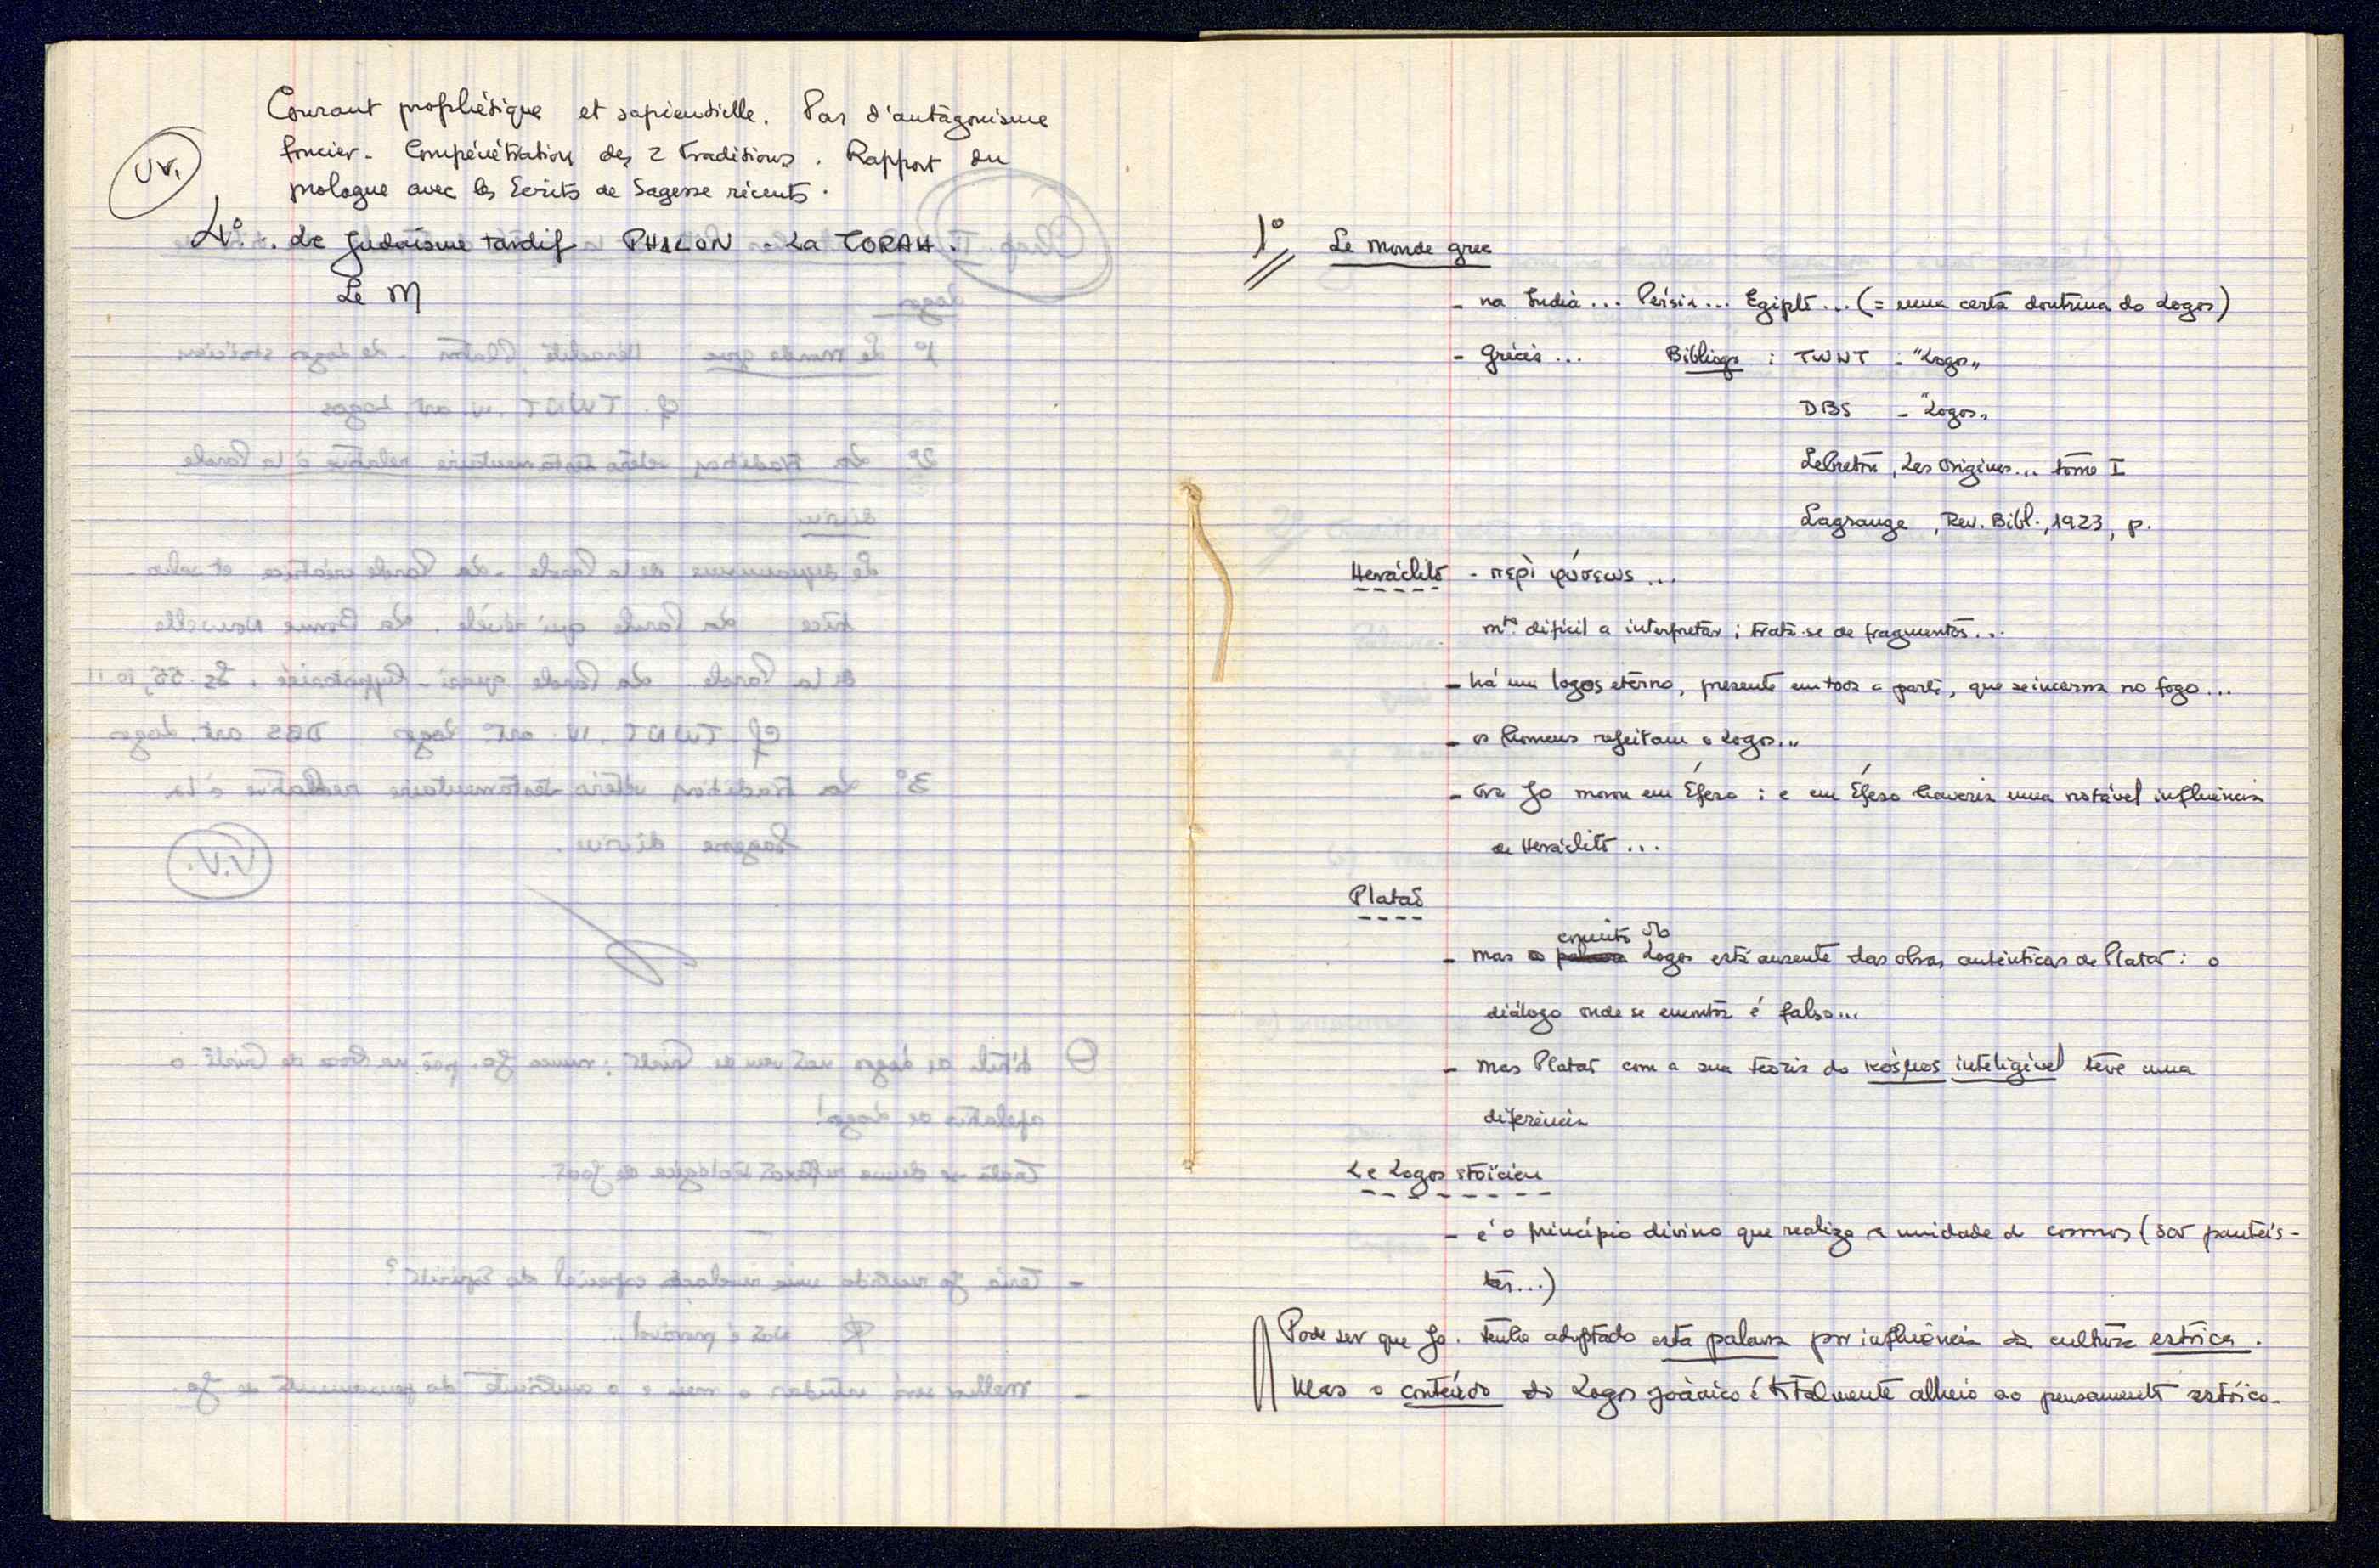 Courant prophétique et sapientielle. Pas d'antagonisme
foncier. Compénétration des 2 traditions. Rapport du
prologue avec les Ecrits de Sagesse récents.
4º. Le Judaïsme tardif PHILON - La TORAH.
Le M
1º Le monde grec
- na India... Pérsia... Egipto... (= uma certa doutrina do Logos)
- Grécia... Bibliogr : TWNT - "Logos"
DBS - "Logos"
Lebreton, Les Origines... tome I
Lagrange, Rev. Bibl., 1923, p.
Heráclito - περὶ φύσεως...
mto. difícil a interpretar ; trata-se de fragmentos...
- há um logos eterno, presente em toda a parte, que se incarna no fogo...
- os homens rejeitam o Logos...
- ora Jo morou em Éfeso : e em Éfeso haveria uma notável influência
de Heráclito...
Platão
conceito do
- mas o palavra Logos está ausente das obras autênticas de Platão : o
diálogo onde se encontra é falso...
- mas Platão com a sua teoria do κόσμος inteligível teve uma
diferencia
Le Logos stoïcien
- é o princípio divino que realiza a unidade do cosmos (são panteís-
tas...)
Pode ser que Jo. tenha adoptado esta palavra por influência da cultura estóica.
Mas o conteúdo do Logos joânico é totalmente alheio ao pensamento estóico.